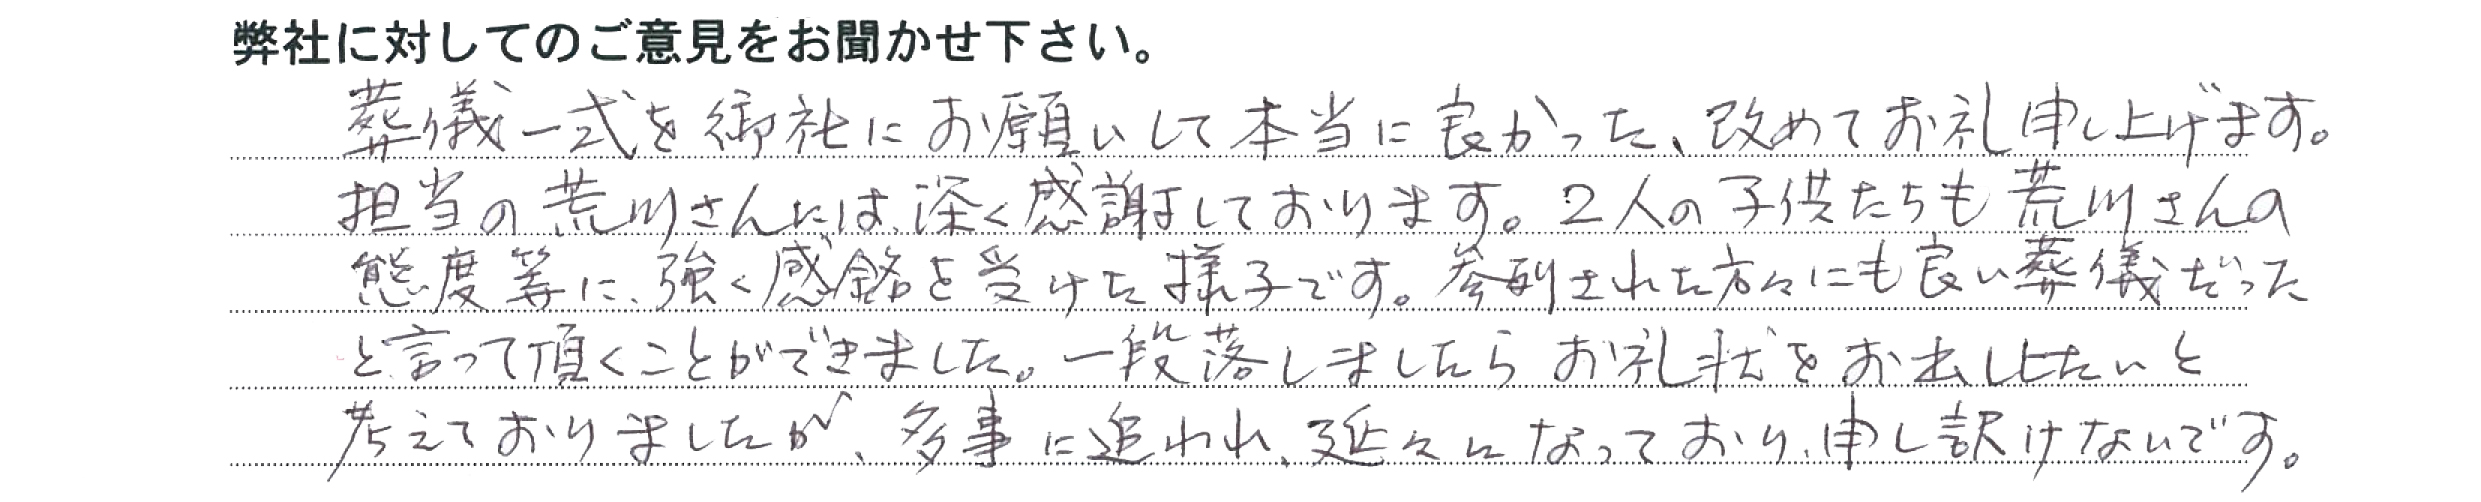 弊社に対してのご意見をお聞かせ下さい。
葬儀一式を御社にお願いして本当に良かった、改めてお礼申し上げます。
担当の荒川さんには、深く感謝しております。2人の子供たちも荒川さんの
態度等に、強く感銘を受けた様子です。参列された方々にも良い葬儀だった
と言って頂くことができました。一段落しましたらお礼状をお出ししたいと
考えておりましたが、多事に追われ、延々になっており、申し訳けないです。